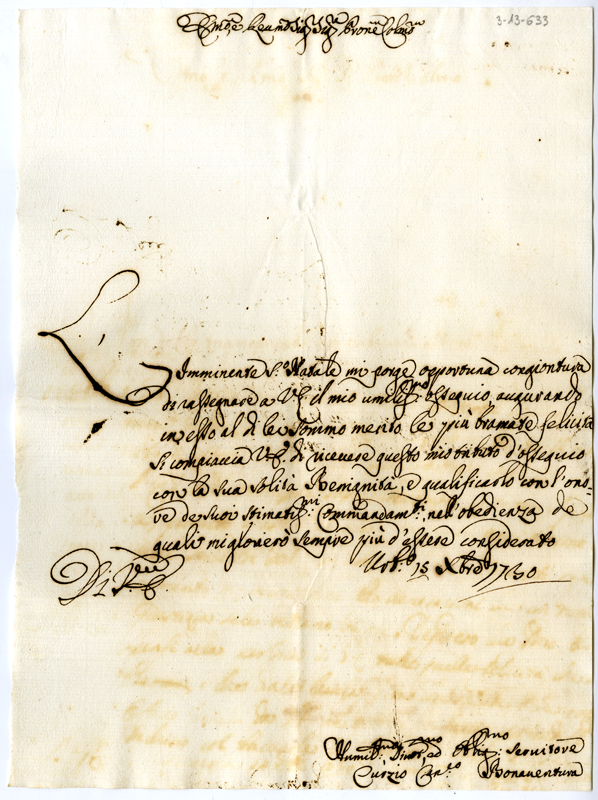 3-13-633
Em.mo e Reu.mo Sig.r Sig.r Prone Colmo
L'Imminente S.o Natale mi porge opportuna congiontura
di rassegnare a V.E. il mio umiliss.mo ossequio, augurando
in esso al di lei sommo merito le più bramate felicità
Si compiaccia V.E. di riceuere questo mio tributo d'ossequio
con la sua solita Benignità, e qualificarlo con l'ono-
re de suoi stimatiss.mi Commandam.ti, nell'obedienza de
quali mi glorierò sempre più d'essere considerato
Di V.E.
Urb.o 15 Xbre 1730
Humil.mo Diuot.mo ed Oblig.mo Seruitore
Curzio Can.co Bonauentura